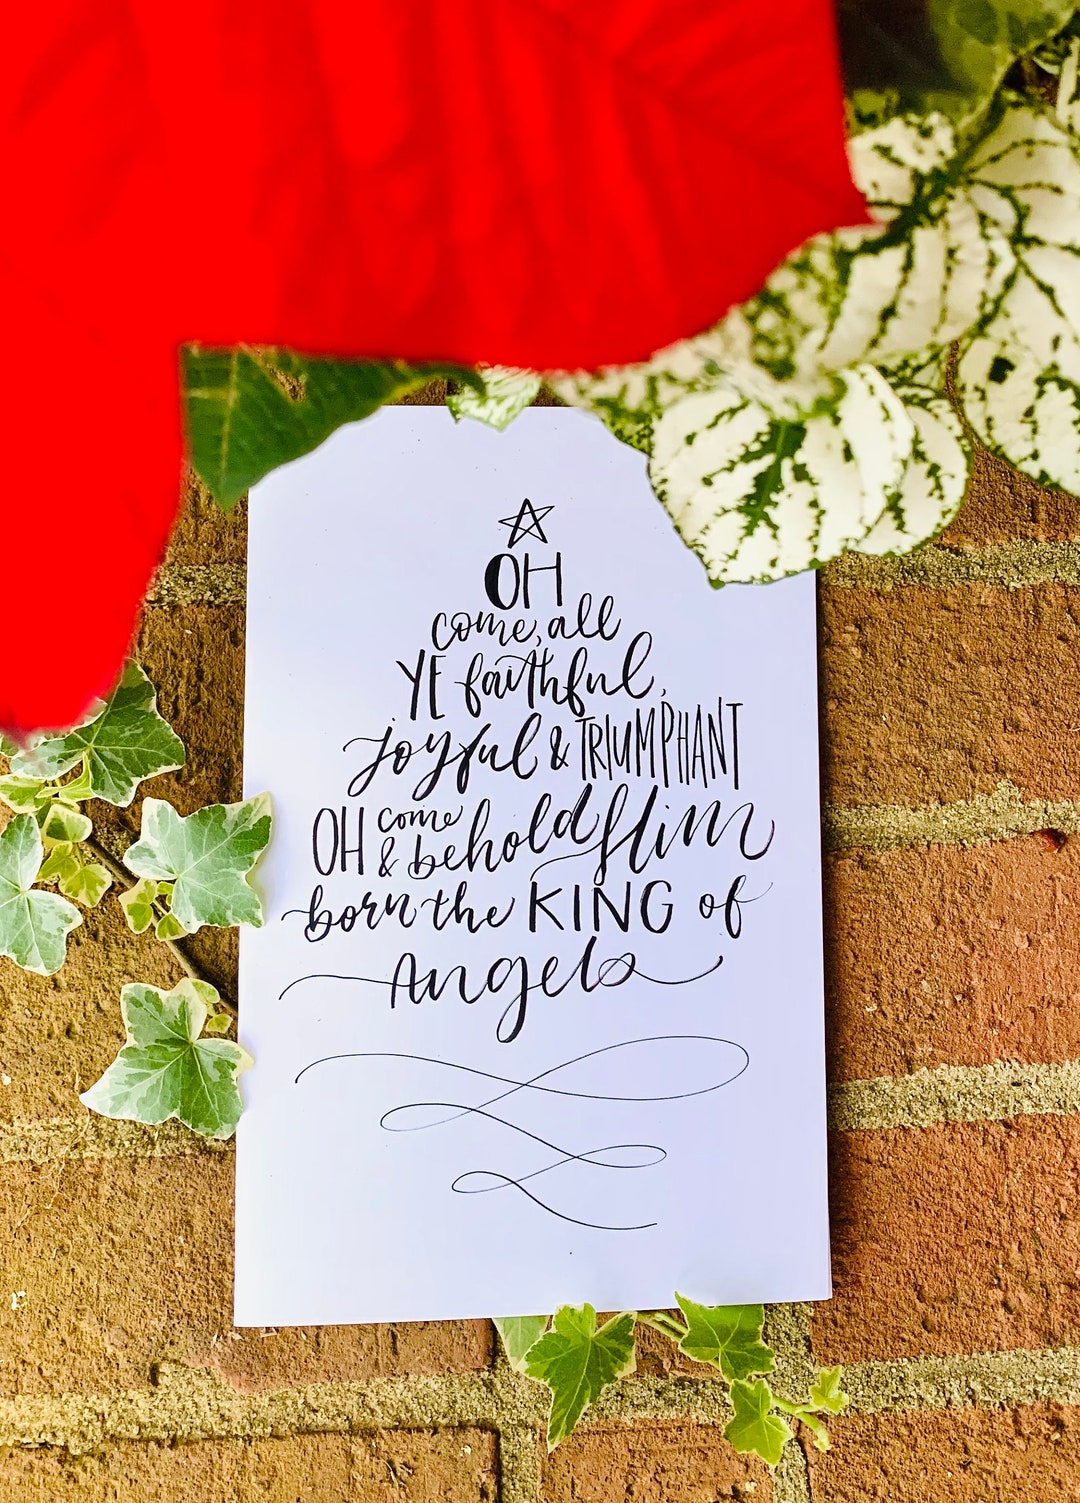 OH
come, all
YE faithful,
joyful & TRIUMPHANT
OH come & behold Him
born the KING of
Angels